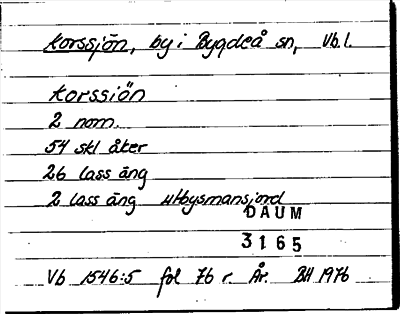 Korssjön, by i Bygdeå sn, Vb.l.
Korssiön
2 nom.
54 skl åker
26 lass äng
2 lass äng utbysmansjord
DAUM
3165
Vb 1546:5 fol 76 r. År. BH 1976